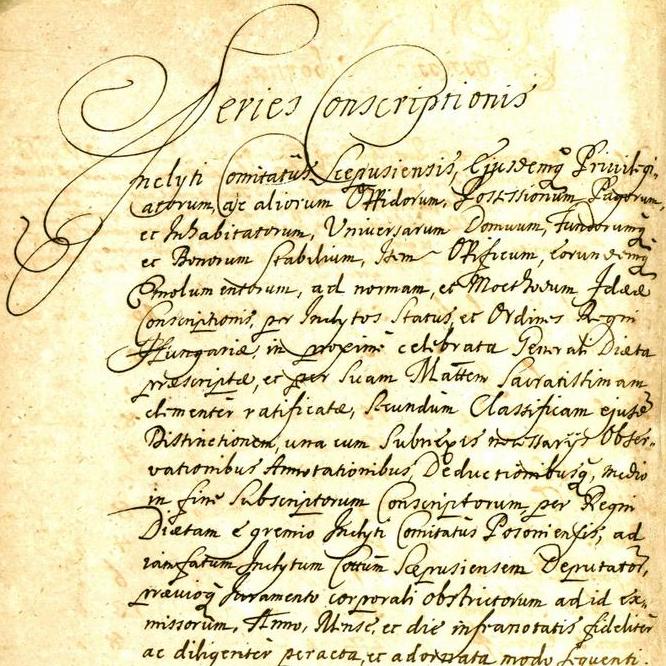 Series Conscriptionis
Inclyti Comitatus Scepusiensis, Ejusdemq Privilegi-
atorum, ac aliorum Oppidorum, Possessionum Pagorum,
et Inhabitatorum, Universarum Domuum, Fundorumq
et Bonorum Stabilium, Item Opificum, eorundemq
Emolumentorum, ad normam, et Methodum Ideæ
Conscriptionis, per Inclytos Status, et Ordines Regni
Hungariæ, in proxime celebrata Generali Diæta
præscriptæ, et per Suam Mattem Sacratissimam
clementer ratificatæ, Secundum Classificam ejusd
Distinctionem, una cum Subnexis necessarijs Obser-
vationibus Annotationibus, Deductionibusq, medio
in fine Subscriptorum Conscriptorum per Regni
Diætam e gremio Inclyti Comitatus Posoniensis, ad
iamfatum Inclytum Cottum Scepusiensem Deputator,
prævioq Juramento corporali obstrictorum ad id ex-
missorum, Anno, Mense, et die infranotatis fideliter
ac diligenter peracta, et adornata modo sequenti.